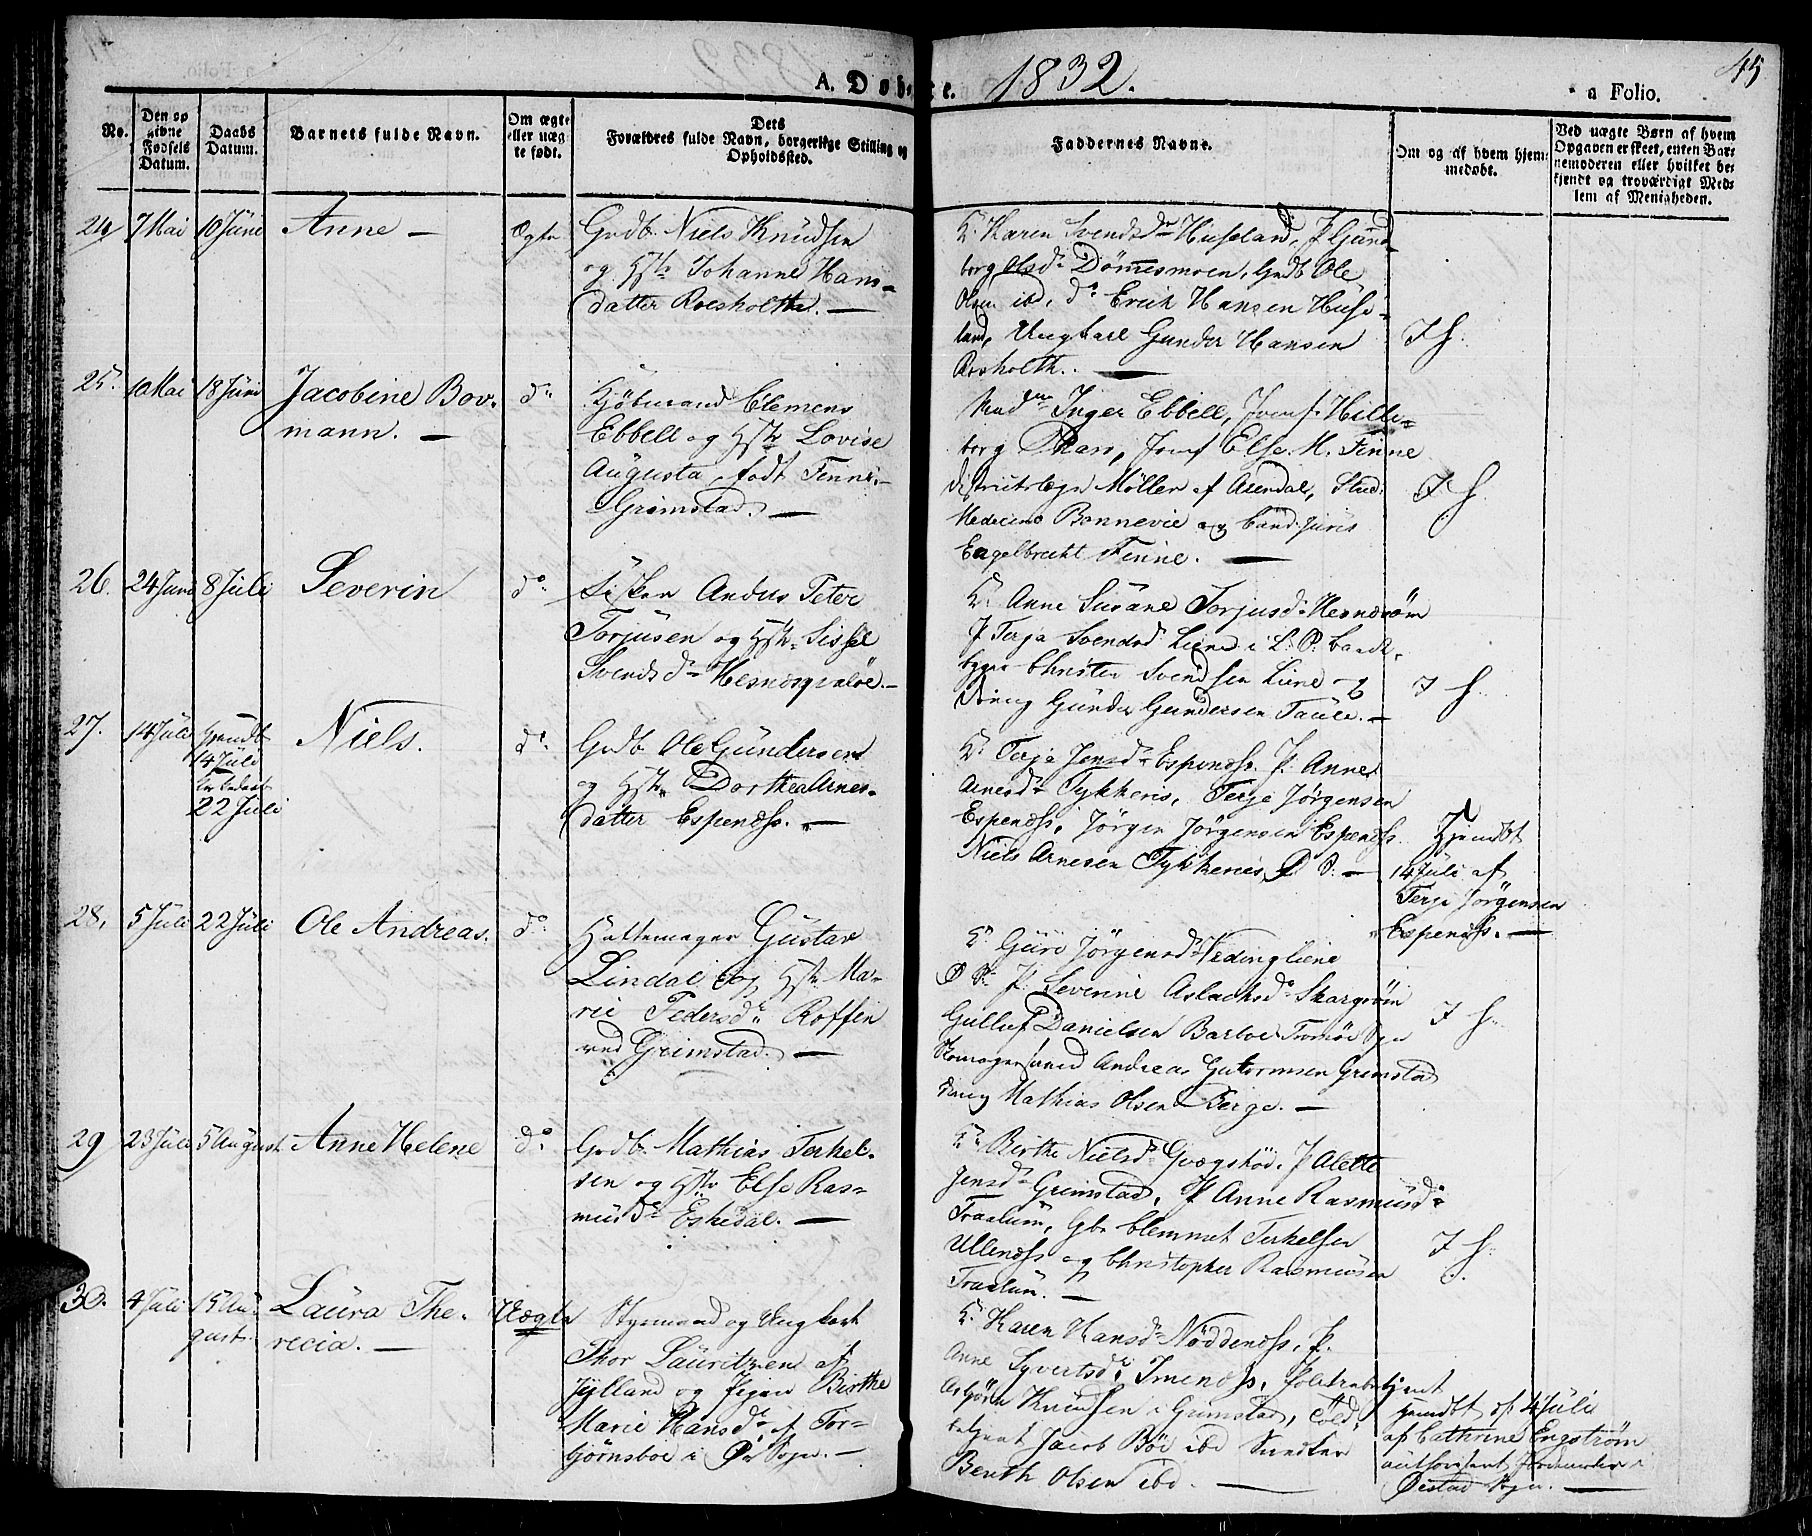 45
A. Døbte. 1832. a Folio.
No.
Den op
givne
Fødsels
Datum.
Daabs
Datum.
Barnets fulde Navn.
Om ægte
eller uæg
te født.
Dets
Forældres fulde Navn, borgerlige Stilling og
Opholdssted.
Faddernes Navne.
Om og af hvem hjem
medøbt.
Ved uægte Børn af hvem
Opgaven er skeet, enten Bar-
nemoderen eller hvilket be-
kjendt og troværdigt Med-
lem af Menigheden.
24 7 Mai 10 Juni Anne — Ægte
Grdb. Niels Knudsen
og Hstr Johanne Hans-
datter Roesholthe. —
K. Karen Svendsdr Huseland, P. Gund-
borg Olsd. Dömmesmoen, Grdb Ole
Olsen ibd, do Erich Hansen Huse-
land, Ungkarl Gunder Hansen
Rosholth. —
I H.
25. 10 Mai 18 Juni Jacobine Bov-
mann. —
do
Kjöbmand Clemens
Ebbell og Hstr Lovise
Augusta, født Finne.
Grimstad. —
Madme Inger Ebbell, Jomf. Hille-
borg Than, Jomf Else M. Finne
Districtslæge Möller af Arendal, Stud:
Medicine Bonnevie og Cand: Juris
Engelbrecht Finne. —
I H.
26. 24 Juni 8 Juli Severin do
Fisker Anders Peter
Torjusen og Hstr. Sissel
Svendsdr
K. Anne Susane Torjusd.
P. Terja Svendsd Liene i L. P.
Christen Svendsen Liene og
Gunder Gundersen Taule. —
I H.
27. 14 Juli Hjemdbt
14 Juli
22 Juli
Niels. do
Grdb Ole Gundersen
og Hstr. Dorthea Arnes-
datter Espenæss. —
K. Terja Jensdr Espenæss. P. Anne
Arnesdr Tykkenis, Terje Jörgensen
Espenæss, Jörgen Jörgensen Espenæss
Niels Arnesen Tykkenes, Ø S. —
Hjemdbt
14 Juli af
Terje Jörgensen
Espenæss. —
28. 5 Juli 22 Juli Ole Andreas. do
Hattemager Gustav
Lindal og Hstr Ma-
rie Pedersdr Roffen
ved Grimstad. —
K. Guro Jörgensdr Vedingliene
P. Severine Aslachsd.
Gulluf Danielsen Tromöe Sogn
Andreas Gutormsen Grimstad
Mathias Olsen Berge. —
I H.
29 23 Juli 5 August Anne Helene do
Grdb. Mathias Terkel-
sen og Hstr Else Ras-
musdr Eskedal. —
K. Birthe Nielsdr P. Alette
Jensdr Grimstad, P Anne Rasmusdr
Traalum, Gbr Clemmet Terkelsen
Ullenæss og Christopher Rasmusen
Traalum. —
I H.
30. 4 Juli 15 Au-
gust.
Laura The-
recia. —
Uægte
Styrmand og Ungkarl
Thor Lauritzen af
Jylland og Pigen Birthe
Marie Hansdr af Tor-
björnsboe i Øi Sogn. —
K. Karen Hansdr Nöddenæss, P.
Anne Syvertsdr Imenæss,
Asbjörn Knudsen i Grimstad, Told-
betjent Jacob Böe ibd
Benth Olsen ibd. —
Hjemdbt af 4 Juli
af Cathrine Engström
Øiestad Sogn. —